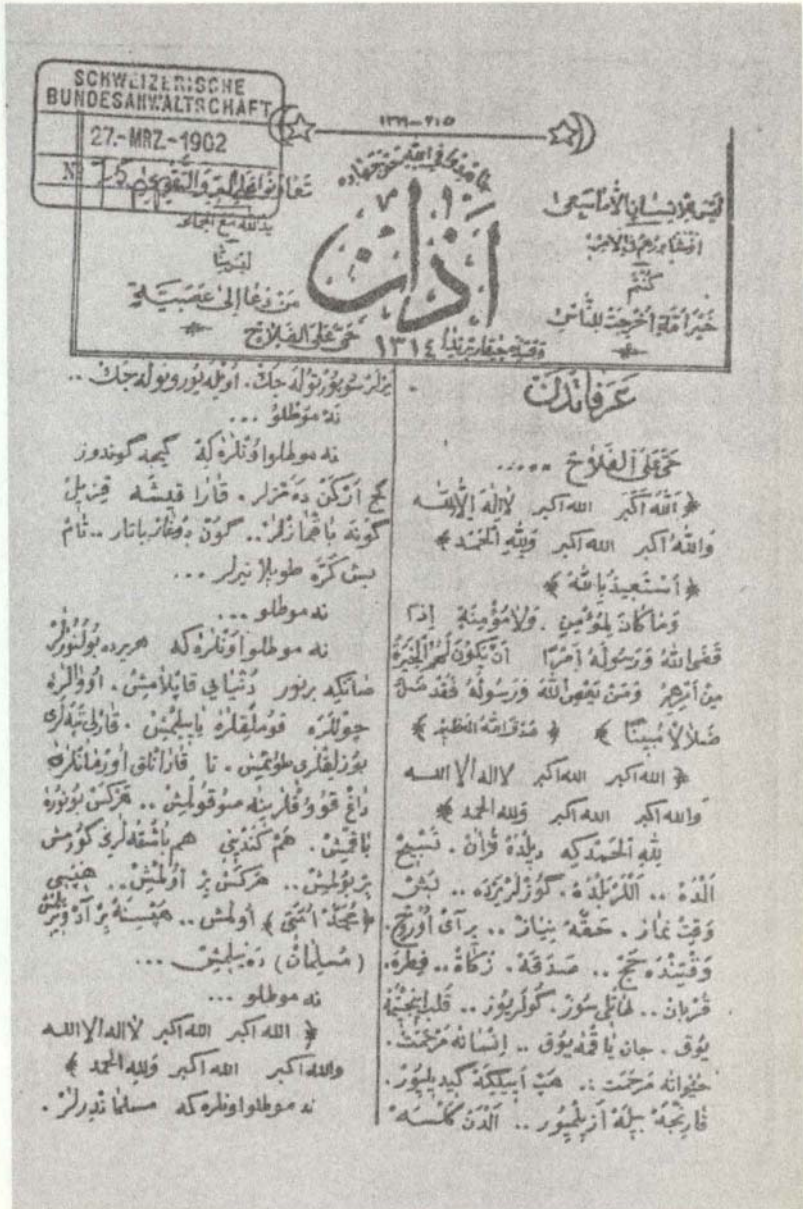 SCHWEIZERISCHE
BUNDESANWALTSCHAFT
27.-MRZ.-1902
№ 75
اذان
ليس للانسان الا ما سعى
كنتم
خير امة اخرجت للناس
من دعا الى عصبية
حى على الفلاح
١٣١٤
عَرَفَاتدن
حَىَّ عَلَى الْفَلَاحْ .....
﴿ اَللهُ اَكْبَر الله اكبر لَا اِلٰهَ اِلَّا الله
وَاللهُ اكبر الله اكبر وَلِلهِ الْحَمْد ﴾
﴿ اَسْتَعِيذُ بِاللهْ ﴾
وَمَا كَانَ لِمُؤْمِنٍ وَلَا مُؤْمِنَةٍ اِذَا
قَضَى اللهُ وَرَسُولُهُ اَمْرًا اَنْ يَكُونَ لَهُمُ الْخِيَرَةُ
مِنْ اَمْرِهِمْ وَمَنْ يَعْصِ اللهَ وَرَسُولَهُ فَقَدْ ضَلَّ
ضَلَالاً مُبِينًا ﴾ ﴿ صَدَقَ اللهُ العَظِيم ﴾
﴿ الله اكبر الله اكبر لا اله الا الله
والله اكبر الله اكبر ولله الحمد ﴾
لِلهِ الْحَمْد كه دِلده قُرْآن . تَسْبِيحْ
اَلْدَهْ .. اَللر بلده . گوزلر يرده .. بَشْ
وَقِتْ نماز . حقّه نياز .. بر آى اوروج .
وَقْتِنده حَجْ .. صَدَقَهْ . زَكَاةْ .. فِطْرَه .
قُرْبان .. طاتلى سوز . گولر يوز .. قلب اينجتمه
يوق . جان ياقمه يوق .. اِنْسانه مَرْحَمَتْ .
حيوانه مَرْحَمت .. هپ اييلكه گيديليور .
قارنجه بيله ازيلميور .. اَلْدن گلسه
يرلر سوپورتوله جك . اويله يورويوله جك ..
نه موطلو ...
نه موطلو اونلره كه گيجه گوندوز
گچ ارکن دَه مَزلر . قارا قيشه قيزيل
گونه باقمازلر .. گون دوغار باتار .. تام
بش كَرّه طوپلانيرلر ...
نه موطلو ...
نه موطلو اونلره كه هر يرده بولنورلر
صانكه بر نور دُنيايى قاپلامش . اووالره
چوللره قوملقلره ياييلمش . قارلى تپه لرى
بوزلقلرى طوتمش . تا قارا كلق اورمانلره
داغ قووقلرينه صوقولمش .. هركس بو نوره
باقمش . هم كندينى هم باشقه لرى گورمش
بر بولمش .. هركس بر اولمش .. هپسى
﴿ محمّد امّتى ﴾ اولمش .. هپسينه بر آد ويرلمش
( مُسلمان ) ده نيلمش ...
نه موطلو ...
﴿ الله اكبر الله اكبر لا اله الا الله
والله اكبر الله اكبر ولله الحمد ﴾
نه موطلو اونلره كه مسلماندرلر .